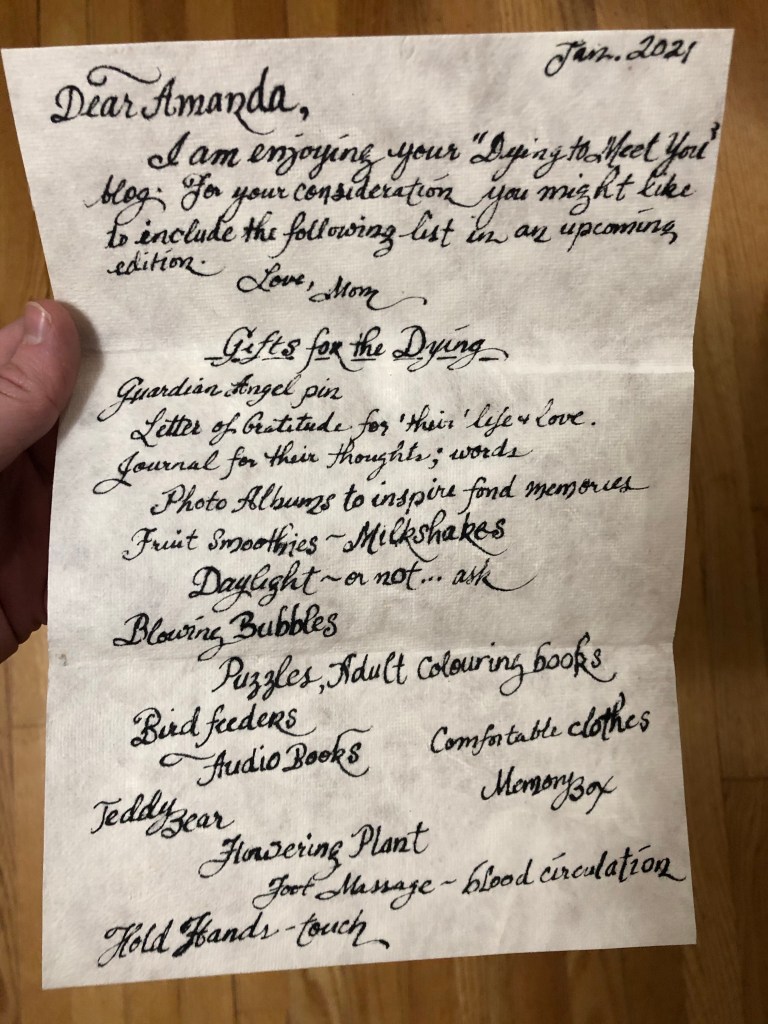 Jan. 2021
Dear Amanda,
I am enjoying your "Dying to Meet You"
blog. For your consideration you might like
to include the following list in an upcoming
edition.
Love, Mom
Gifts for the Dying
Guardian Angel pin
Letter of Gratitude for 'their' life & love.
Journal for their thoughts; words
Photo Albums to inspire fond memories
Fruit Smoothies ~ Milkshakes
Daylight ~ or not... ask
Blowing Bubbles
Puzzles, Adult Colouring books
Bird feeders
Comfortable clothes
Audio Books
Memory Box
Teddy Bear
Flowering Plant
Foot Massage ~ blood circulation
Hold Hands - touch